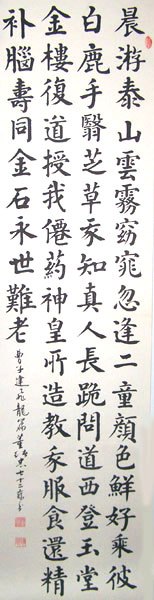 晨游泰山雲霧窈窕忽逢二童顏色鮮好乘彼
白鹿手翳芝草我知真人長跪問道西登玉堂
金樓復道授我僊葯神皇所造教我服食還精
补腦壽同金石永世難老
曹子建飛龍篇董七十二歲